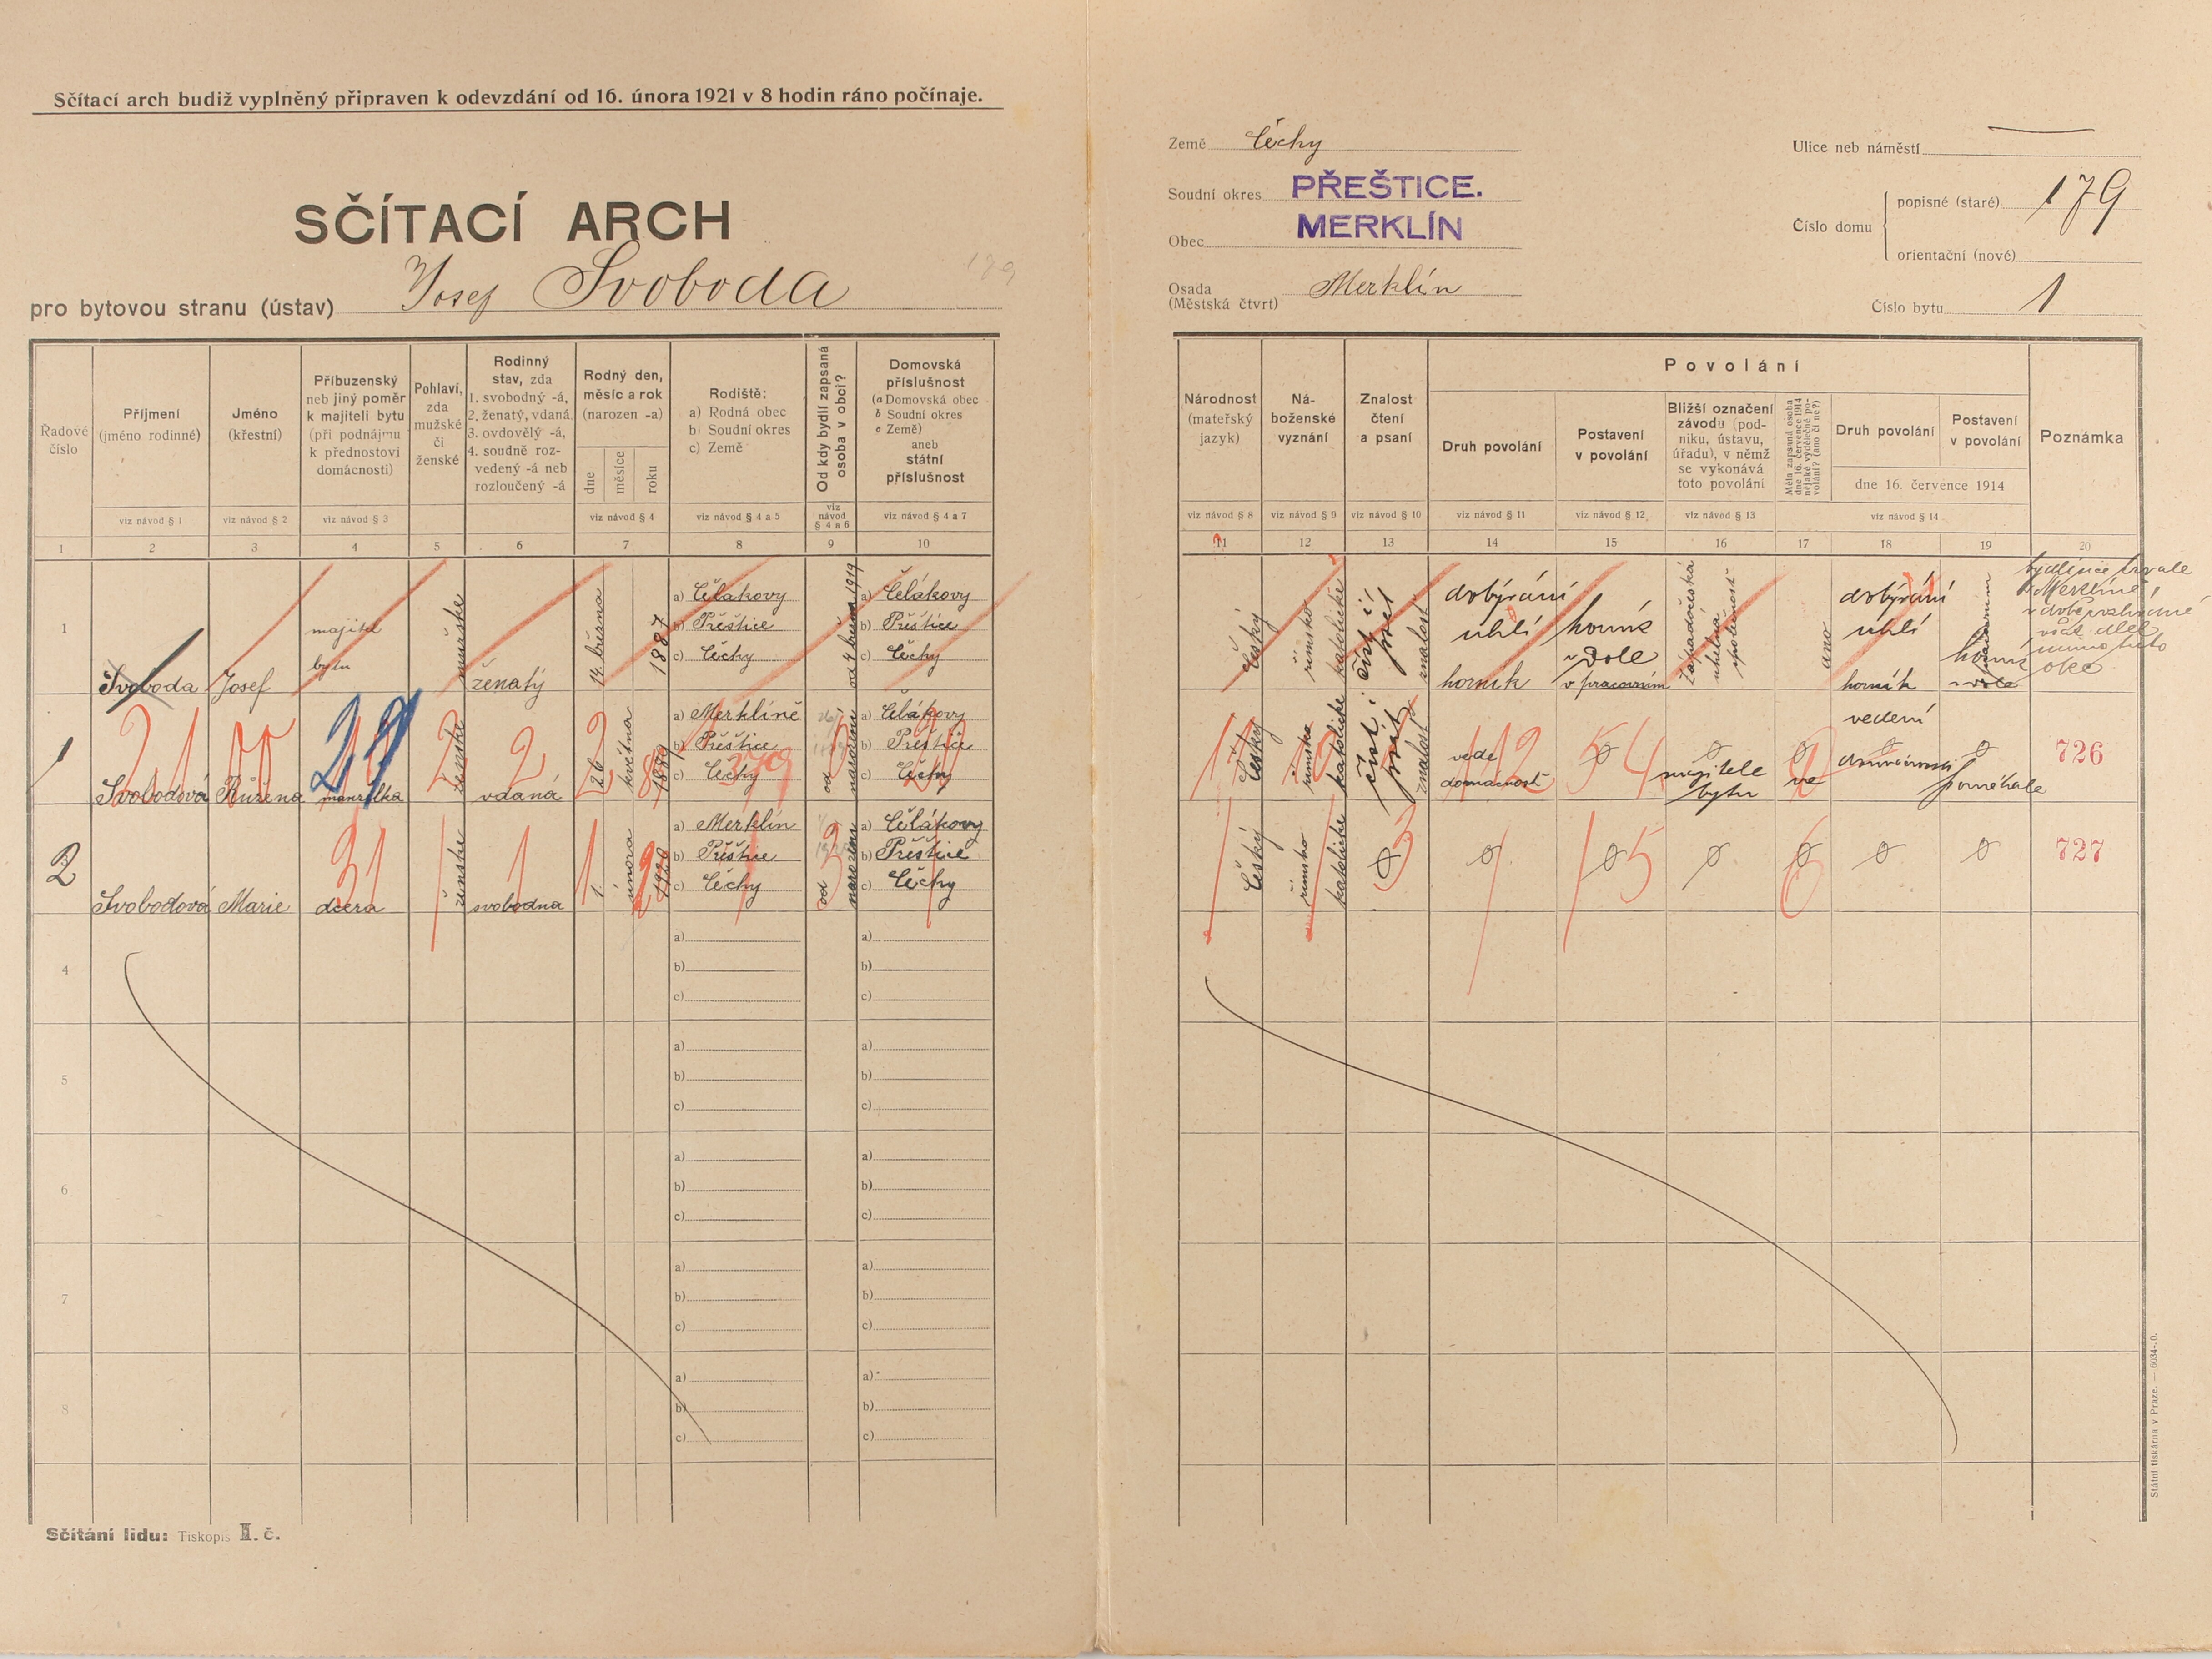 Sčítací arch budiž vyplněný připraven k odevzdání od 16. února 1921 v 8 hodin ráno počínaje.
SČÍTACÍ ARCH
pro bytovou stranu (ústav) Josef Svoboda
179
Země Čechy
Soudní okres PŘEŠTICE.
Obec MERKLÍN
Osada
(Městská čtvrt) Merklín
Ulice neb náměstí
Číslo domu
popisné (staré) 179
orientační (nové)
Číslo bytu 1
Řadové
číslo
Příjmení
(jméno rodinné)
Jméno
(křestní)
Příbuzenský
neb jiný poměr
k majiteli bytu
(při podnájmu
k přednostovi
domácnosti)
Pohlaví,
zda
mužské
či
ženské
Rodinný
stav, zda
1. svobodný -á,
2. ženatý, vdaná,
3. ovdovělý -á,
4. soudně roz-
vedený -á neb
rozloučený -á
Rodný den,
měsíc a rok
(narozen -a)
dne
měsíce
roku
Rodiště:
a) Rodná obec
b) Soudní okres
c) Země
Od kdy bydlí zapsaná
osoba v obci?
Domovská
příslušnost
(a Domovská obec
b Soudní okres
c Země)
aneb
státní
příslušnost
viz návod § 1
viz návod § 2
viz návod § 3
viz návod § 4
viz návod § 4 a 5
viz
návod
§ 4 a 6
viz návod § 4 a 7
1 2 3 4 5 6 7 8 9 10
Národnost
(mateřský
jazyk)
Ná-
boženské
vyznání
Znalost
čtení
a psaní
Povolání
Druh povolání
Postavení
v povolání
Bližší označení
závodu (pod-
niku, ústavu,
úřadu), v němž
se vykonává
toto povolání
Měla zapsaná osoba
dne 16. července 1914
nějaké výdělečné po-
volání? (ano či ne?)
Druh povolání
Postavení
v povolání
dne 16. července 1914
Poznámka
viz návod § 8
viz návod § 9
viz návod § 10
viz návod § 11
viz návod § 12
viz návod § 13
viz návod § 14
11 12 13 14 15 16 17 18 19 20
1
Svoboda
Josef
majitel
bytu
mužské
ženatý
14.
března
1887
a) Čelákovy
b) Přeštice
c) Čechy
a) Čelákovy
b) Přeštice
c) Čechy
český
římsko
katolické
číst i
psát
znalost
dobývání
uhlí
horník
horník
v dole
v pracovním
Západočeská
uhelná
společnost
ano
dobývání
uhlí
horník
horník
v dole
bydlející trvale
v Merklíně,
1
Svobodová
Růžena
manželka
ženské
vdaná
26
května
a) Merklíně
b) Přeštice
c) Čechy
od
narození
a) Čelákovy
b) Přeštice
c) Čechy
český
římsko
katolické
číst i
psát
znalost
vede
domácnost
majitele
bytu
vedení
pomáhala
726
2
Svobodová
Marie
dcera
ženské
svobodna
1.
února
1920
a) Merklín
b) Přeštice
c) Čechy
od
narození
a) Čelákovy
b) Přeštice
c) Čechy
český
římsko
katolické
727
4
a)
b)
c)
a)
b)
c)
5
a)
b)
c)
a)
b)
c)
6
a)
b)
c)
a)
b)
c)
7
a)
b)
c)
a)
b)
c)
8
a)
b)
c)
a)
b)
c)
Sčítání lidu: Tiskopis II. č.
Státní tiskárna v Praze. — 6034-.0.